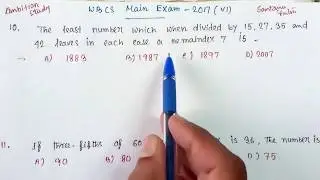 Ambition Study
WBCS Main Exam - 2017 (VI)
10. The least number which when divided by 15, 27, 35 and
42 leaves in each case a remainder 7 is -
→ A) 1883 B) 1987 c) 1897 D) 2007
11. If three-fifths of 60 is 36, the number is
A) 90 B) 80 D) 75